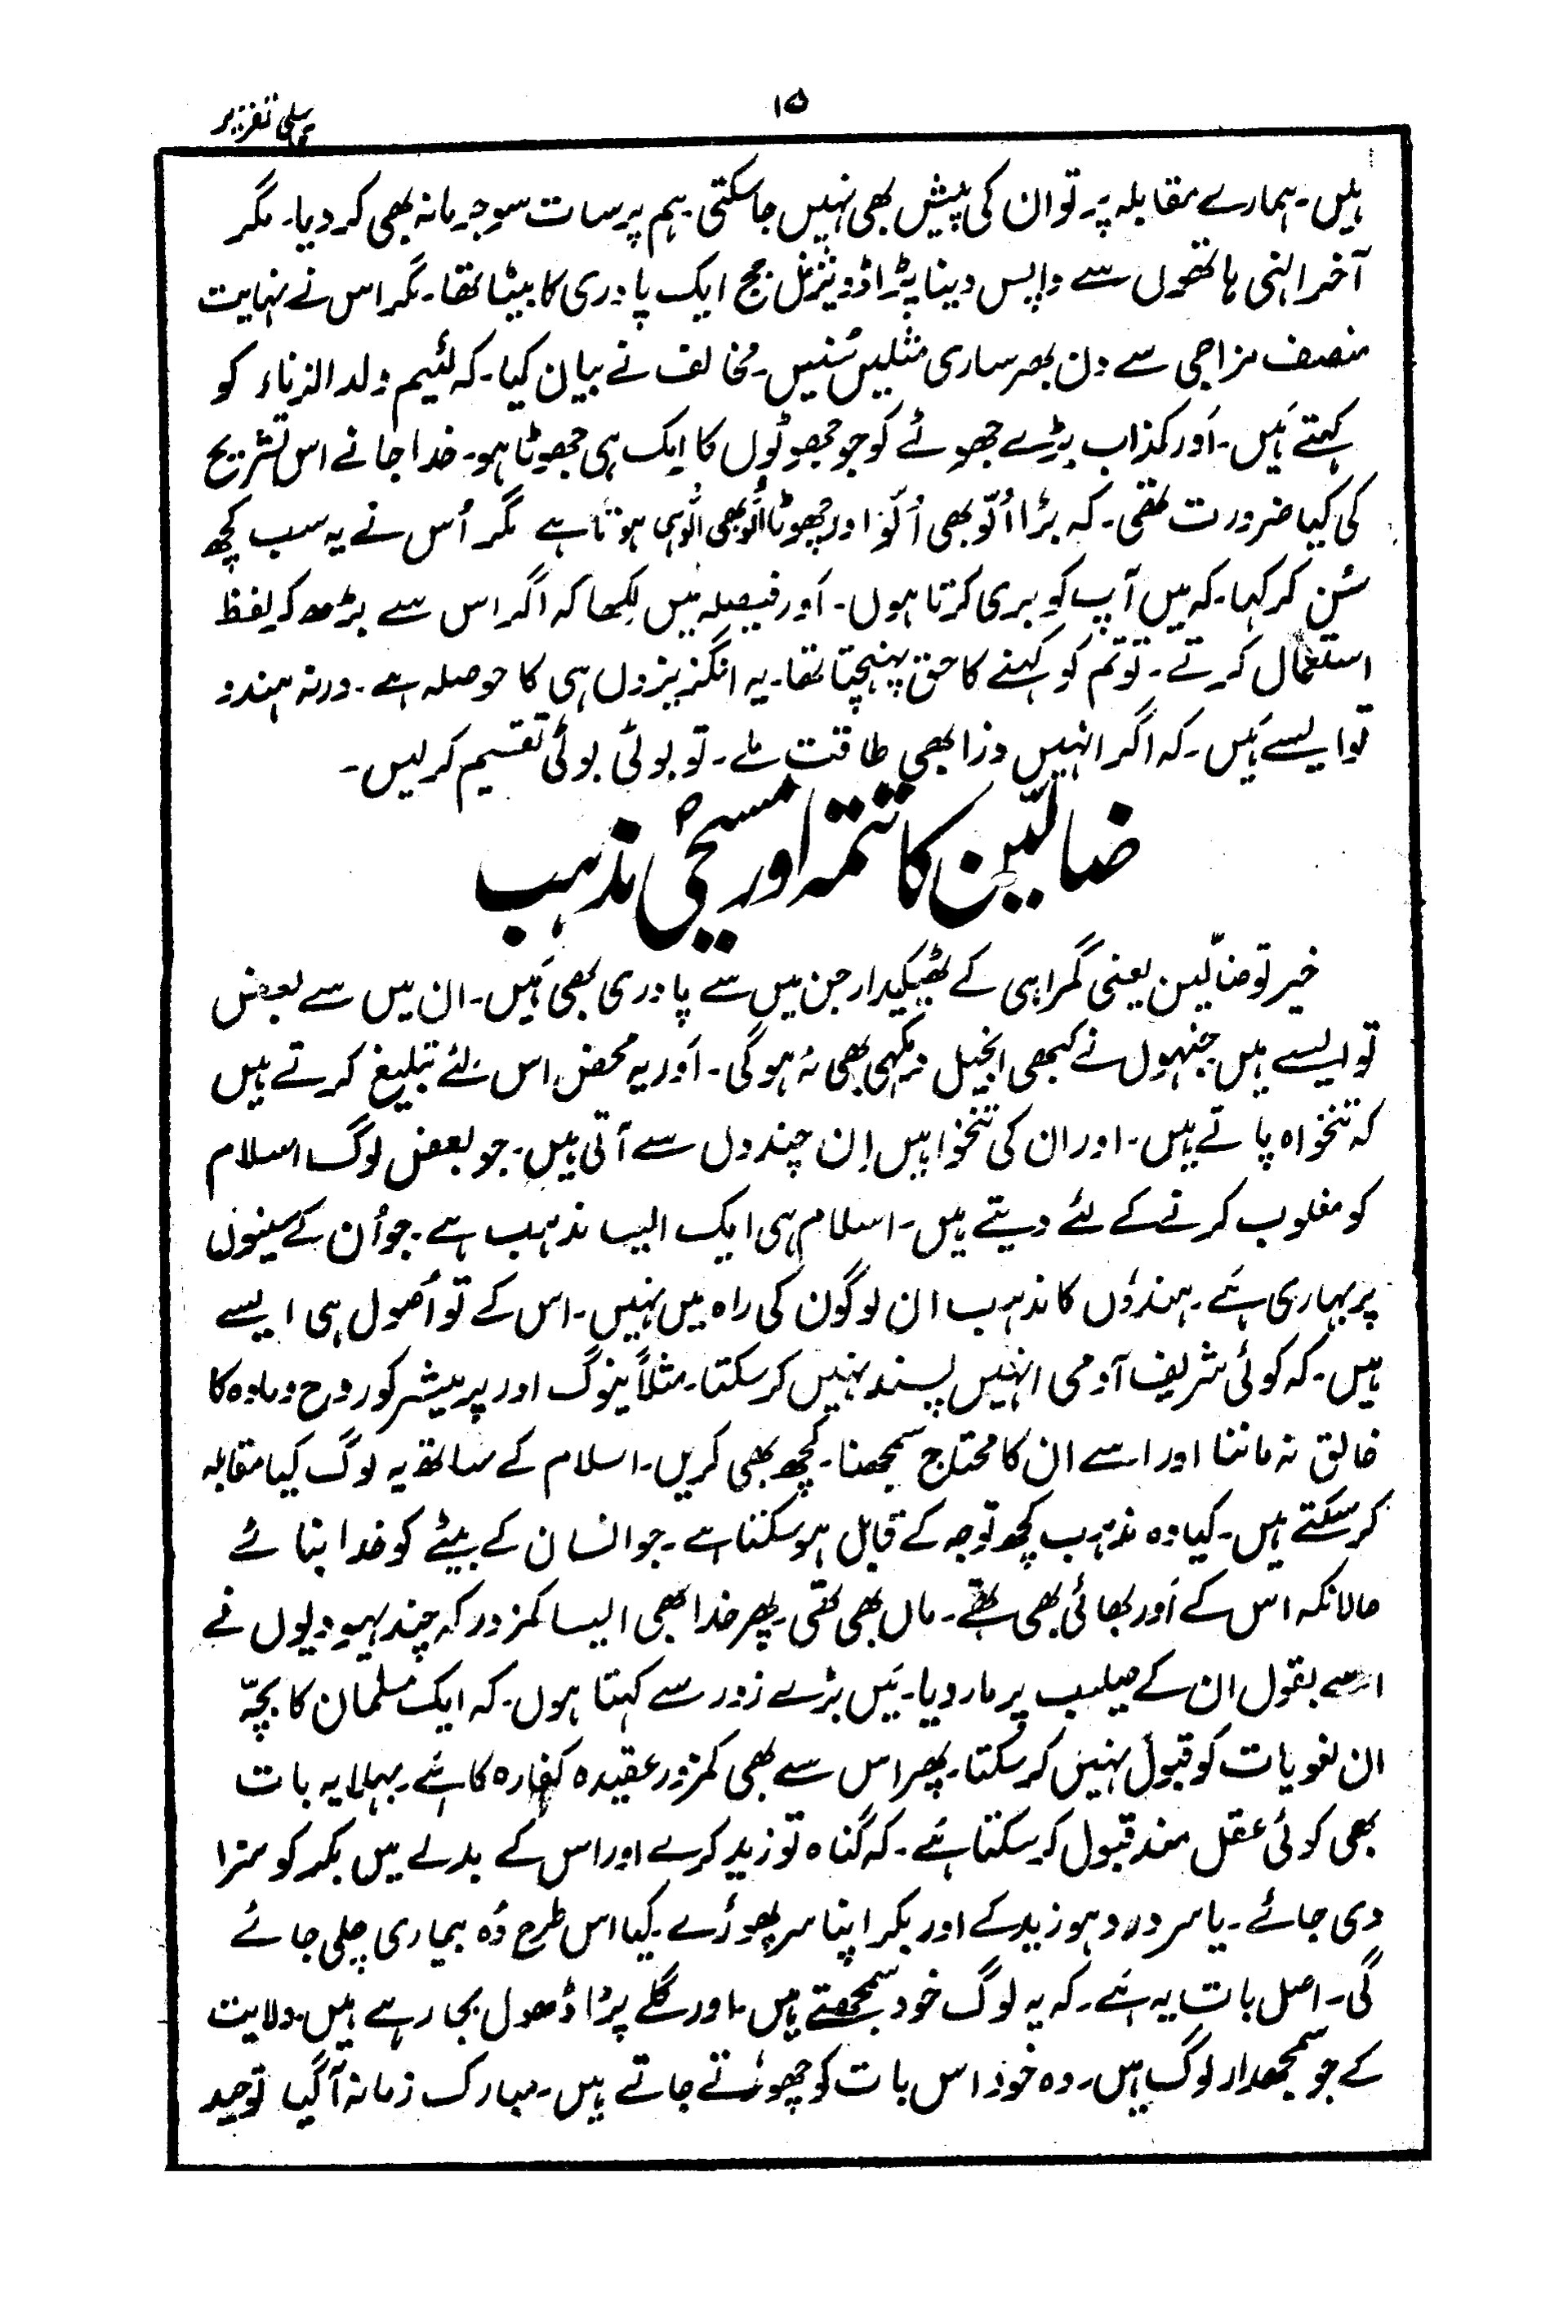 ۱۵
پہلی تقریر
ہیں۔ ہمارے مقابلہ پر تو ان کی پیش بھی نہیں جاسکتی۔ ہم پر سات سو جرمانہ بھی کر دیا۔ مگر
آخر انہی ہاتھوں سے واپس دینا پڑا ڈویژنل جج ایک پادری کا بیٹا تھا۔ مگر اس نے نہایت
منصف مزاجی سے دن بھر ساری مثلیں سُنیں۔ مخالف نے بیان کیا۔ کہ لئیم ولد الزناء کو
کہتے ہَیں۔ اَور کذاب بڑے جھوٹے کو جو جھوٹوں کا ایک ہی جھوٹا ہو۔ خدا جانے اس تشریح
کی کیا ضرورت تھی۔ کہ بڑا اُلّو بھی اُلّو اور چھوٹا اُلّو بھی اُلّو ہی ہوتا ہے مگر اُس نے یہ سب کچھ
سُن کر کہا۔ کہ میں آپ کو بری کرتا ہوں۔ اَور فیصلہ میں لکھا کہ اگر اس سے بڑھ کر لفظ
استعمال کرتے۔ تو تم کو کہنے کا حق پہنچتا تھا۔ یہ انگریزوں ہی کا حوصلہ ہے۔ ورنہ ہندو
تو ایسے ہَیں۔ کہ اگر انہیں ذرا بھی طاقت ملے۔ تو بوٹی بوٹی تقسیم کر لیں۔
ضالّین کا تتمہ اور مسیحی مذہب
خیر تو ضالّین یعنی گمراہی کے ٹھیکیدار جن میں سے پادری بھی ہَیں۔ ان میں سے بعض
تو ایسے ہیں جنہوں نے کبھی انجیل دیکھی بھی نہ ہوگی۔ اَور یہ محض اس لئے تبلیغ کرتے ہیں
کہ تنخواہ پاتے ہیں۔ اور ان کی تنخواہیں اِن چندوں سے آتی ہیں۔ جو بعض لوگ اسلام
کو مغلوب کرنے کے لئے دیتے ہیں۔ اسلام ہی ایک ایسا مذہب ہے۔ جو اُن کے سینوں
پر بہاری ہَے۔ ہندوٗں کا مذہب ان لوگوں کی راہ میں نہیں۔ اس کے تو اُصول ہی ایسے
ہیں۔ کہ کوئی شریف آدمی انہیں پسند نہیں کر سکتا۔ مثلاً نیوگ اور پرمیشر کو روح و مادہ کا
خالق نہ ماننا اور اسے ان کا محتاج سمجھنا۔ کچھ بھی کریں۔ اسلام کے ساتھ یہ لوگ کیا مقابلہ
کر سکتے ہیں۔ کیا وہ مذہب کچھ توجہ کے قابل ہو سکتا ہے۔ جو انسان کے بیٹے کو خدا بنائے
حالانکہ اس کے اَور بھائی بھی تھے۔ ماں بھی تھی۔ پھر خدا بھی ایسا کمزور کہ چند یہودیوں نے
اسے بقول ان کے صلیب پر مار دیا۔ مَیں بڑے زور سے کہتا ہوں۔ کہ ایک مسلمان کا بچّہ
ان لغویات کو قبول نہیں کر سکتا۔ پھر اس سے بھی کمزور عقیدہ کفارہ کا ہَے۔ بہلا یہ بات
بھی کوئی عقل مند قبول کر سکتا ہَے۔ کہ گناہ تو زید کرے اور اس کے بدلے میں بکر کو سزا
دی جائے۔ یا سر درد ہو زید کے اور بکر اپنا سر پھوڑے۔ کیا اس طرح وُہ بیماری چلی جائے
گی۔ اصل بات یہ ہَے۔ کہ یہ لوگ خود سمجھتے ہیں۔ اور گلے پڑا ڈھول بجا رہے ہیں۔ ولایت
کے جو سمجھدار لوگ ہیں۔ وہ خود اس بات کو چھوڑتے جاتے ہیں۔ مبارک زمانہ آگیا توحید